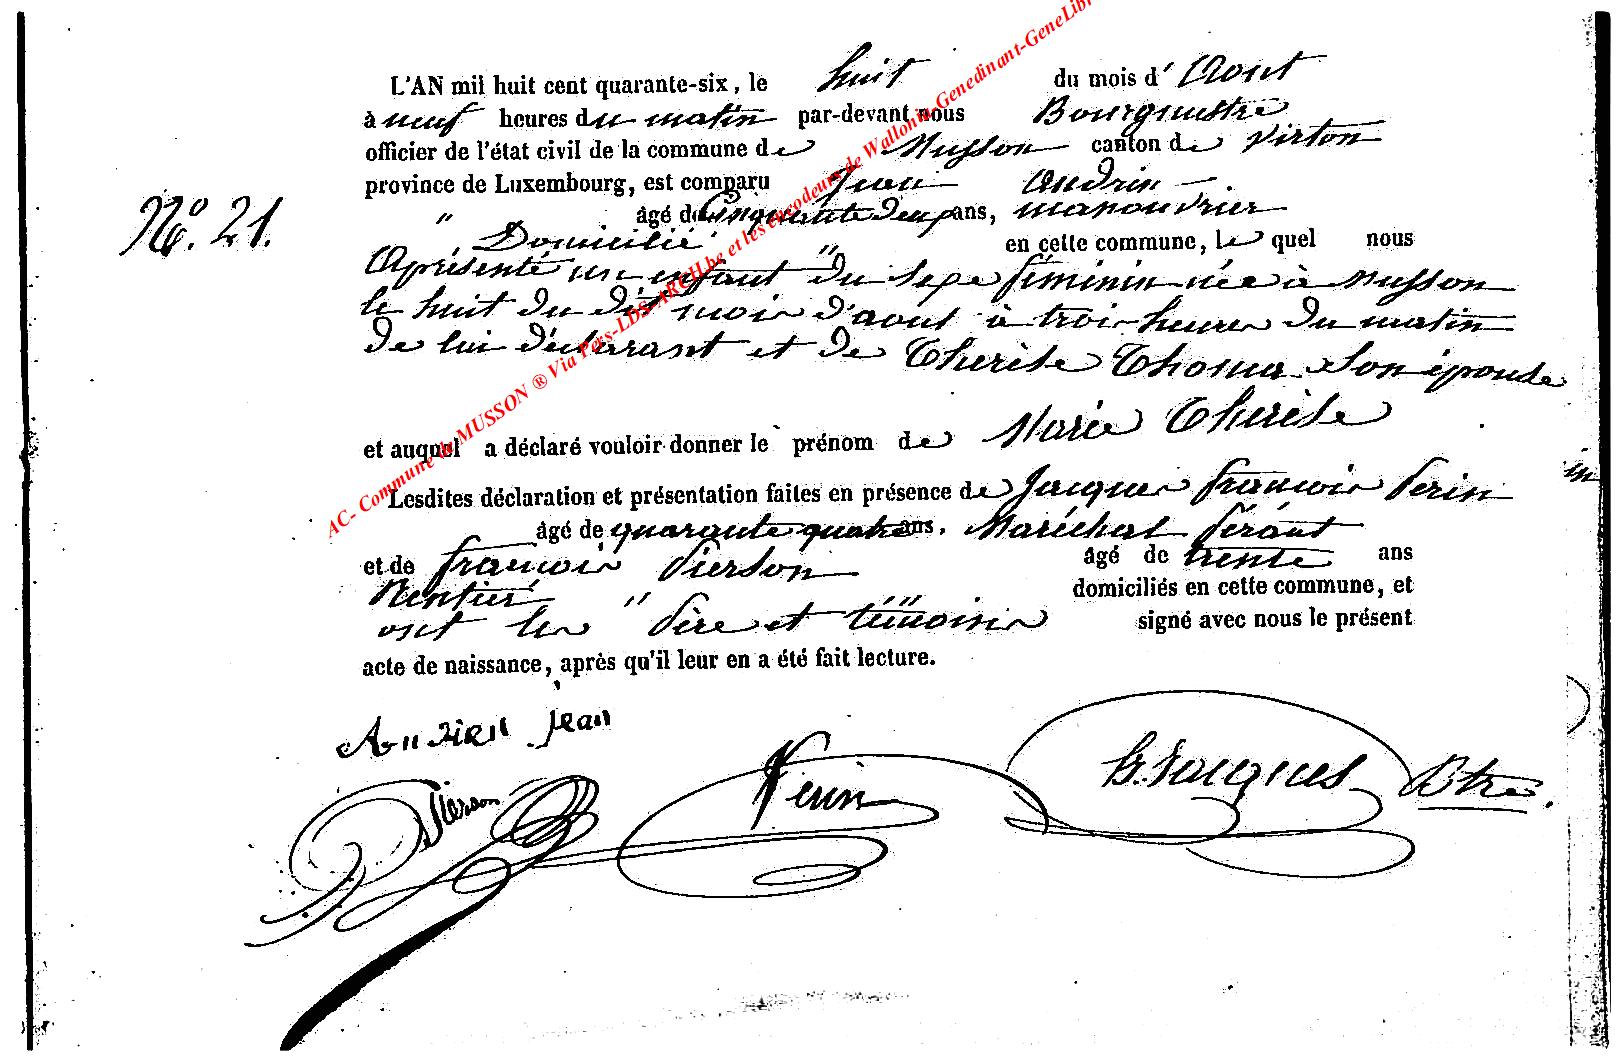 L'AN mil huit cent quarante-six, le huit du mois d' Aout
à neuf heures du matin par-devant nous Bourgmestre
officier de l'état civil de la commune de Musson canton de Virton
province de Luxembourg, est comparu Jean Andrin
N.º 21.
" âgé de Cinquante deux ans, manouvrier
Domicilié " en cette commune, le quel nous
Aprésenté un enfant du sexe féminin née à Musson
le huit du dit mois d'aout à trois heures du matin
de lui déclarant et de Therèse Thomas son épouse
et auquel a déclaré vouloir donner le prénom de Marie Therèse
Lesdites déclaration et présentation faites en présence de Jacques françois Perin
âgé de quarante quatre ans, Maréchal férant
et de françois Pierson âgé de trente ans
Rentier " " domiciliés en cette commune, et
ont les Père et témoins signé avec nous le présent
acte de naissance, après qu'il leur en a été fait lecture.
Jean
Pierson Perin Jacques Btre.
AC- Commune de MUSSON ® Via Pers-LDS-ARCH.be et les encodeurs de Wallonia-Genedinant-GeneLibr